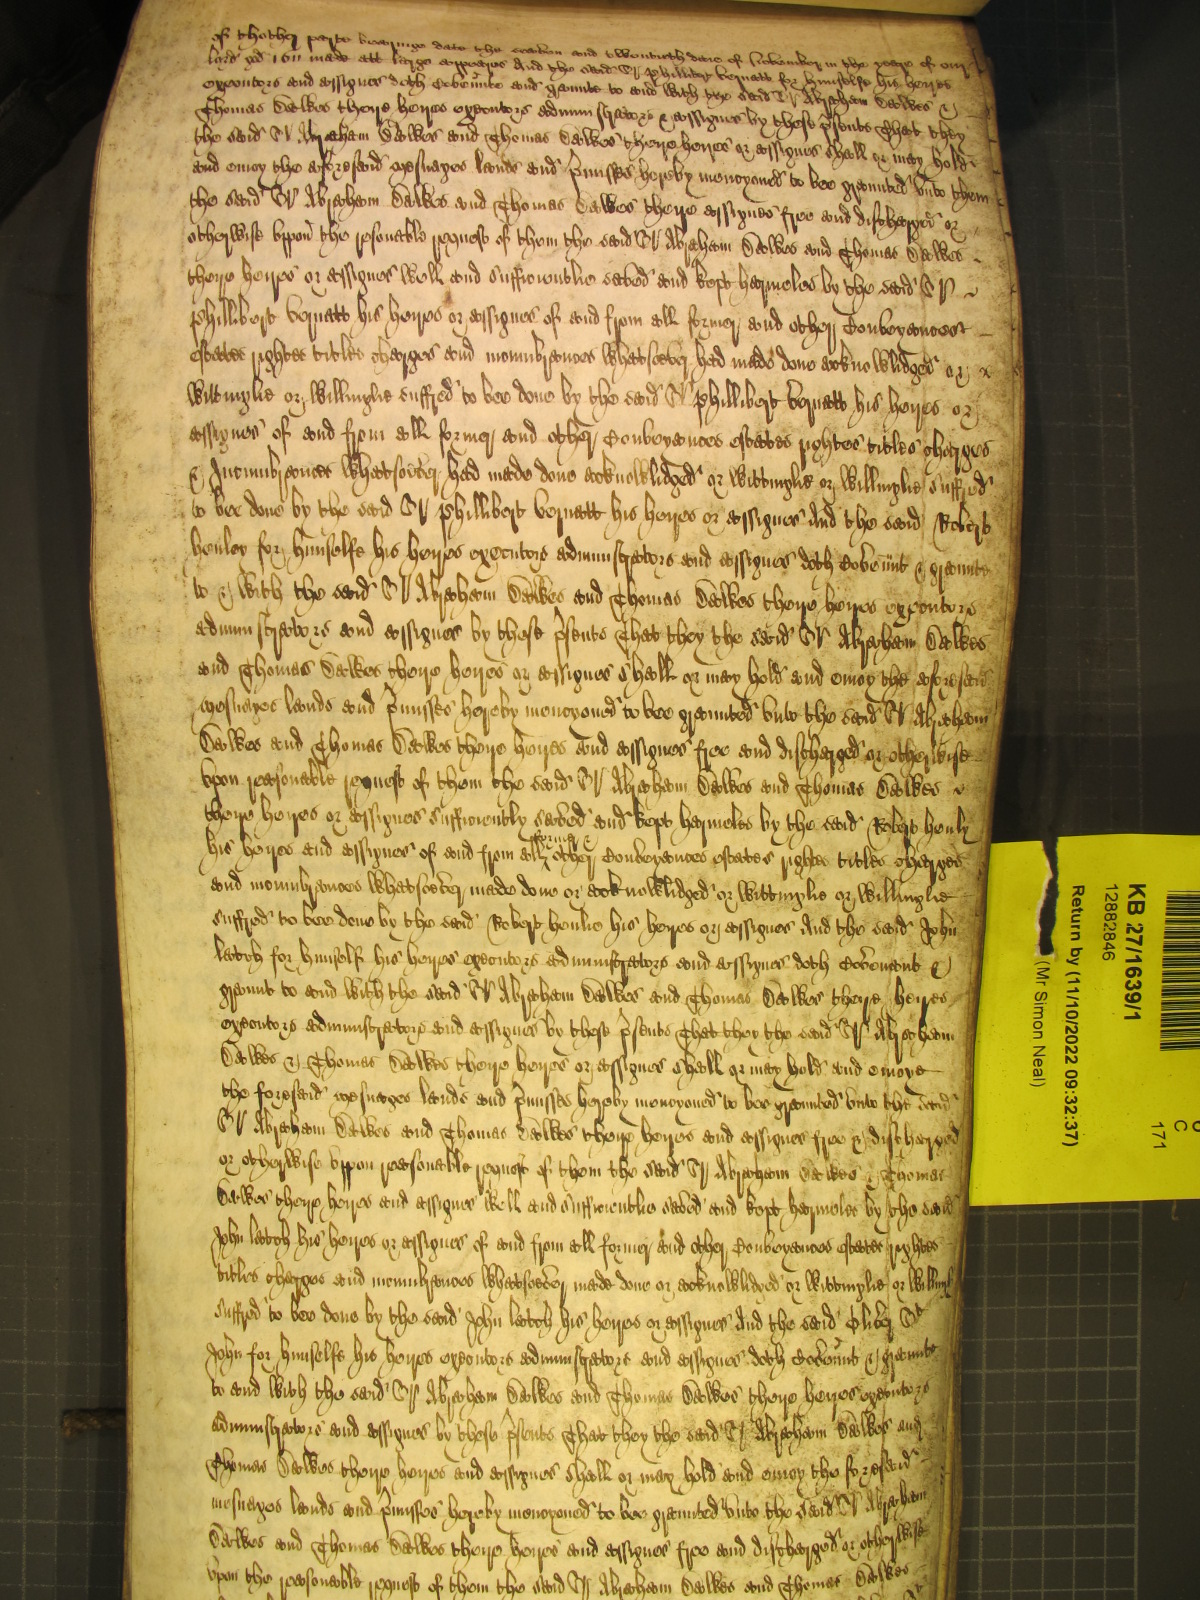 of thother parte bearinge date the and twentieth daie of November in the yeare of our
lord god 1611 made att large appeares And the said Sr Phillibert Vernatt for himselfe his heires
executors and assignes doth Covennte and graunte to and with the said Sr Abraham Dawes &
Thomas Dawes theire heires executors administrators & assignes by these psents That they
the said Sr Abraham Dawes and Thomas Dawes theire heires or assignes shall or may hold
and enioy the aforesaid mesuages lands and pmisses hereby mencyoned to bee graunted unto them
the said Sr Abraham Dawes and Thomas Dawes theire assignes free and discharged or
otherwise uppon the resonable request of them the said Sr Abraham Dawes and Thomas Dawes
theire heires or assignes well and sufficientlie saved and kept harmeles by the said Sr
Phillibert Vernatt his heires or assignes of and from all former and other Conveyances
estates rightes titles charges and incumbrances whatsoever had made done acknowlidged or
wittinglie or willinglie suffred to bee done by the said Sr Phillibert Vernatt his heires or
assignes of and from all former and other Conveyances estates rightes titles charges
& Incumbrances whatsoever had made done acknowlidged or wittinglie or willinglie suffred
to bee done by the said Sr Phillibert Vernatt his heires or assignes And the said Robert
henley for himselfe his heires executors administrators and assignes doth Covennt & graunte
to & with the said Sr Abraham Dawes and Thomas Dawes theire heires executors
administrators and assignes by these psents That they the said Sr Abraham Dawes
and Thomas Dawes theire heires or assignes shall or may hold and enioy the aforesaid
mesuages lands and pmisses hereby mencyoned to bee graunted unto the said Sr Abraham
Dawes and Thomas Dawes theire heires and assignes free and discharged or otherwise
upon reasonable request of them the said Sr Abraham Dawes and Thomas Dawes
theire heires or assignes sufficiently saved and kept harmeles by the said Robert Henly
his heires and assignes of and from all former & other Conveyances estates rightes titles charges
and incumbrances whatsoever made done or acknowlidged or wittinglie or willinglie
suffred to bee done by the said Robert Henlie his heires or assignes And the said John
latch for himself his heires executors administrators and assignes doth Covenant &
graunt to and with the said Sr Abraham Dawes and Thomas Dawes theire heires
executors administrators and assignes by these psents That they the said Sr Abraham
Dawes & Thomas Dawes theire heires or assignes shall or may hold and enioye
the foresaid mesuages lands and pmisses hereby mencyoned to bee graunted unto the said
Sr Abraham Dawes and Thomas Dawes theire heires and assignes free & discharged
or otherwise uppon reasonable request of them the said Sr Abraham Dawes & Thomas
Dawes theire heires and assignes well and sufficientlie saved and kept harmeles by the said
John latch his heires or assignes of and from all former and other Conveyances estates rightes
titles charges and incumbrances whatsoever made done or acknowlidged or wittinglie or willinglie
suffred to bee done by the said John latch his heires or assignes And the said Oliver St
John for himselfe his heires executors administrators and assignes doth Covennt & graunte
to and with the said Sr Abraham Dawes and Thomas Dawes theire heires executors
administrators and assignes by these psents That they the said Sr Abraham Dawes and
Thomas Dawes theire heires and assignes shall or may hold and enioy the foresaid
mesuages lands and pmisses hereby mencyoned to bee graunted unto the said Sr Abraham
Dawes and Thomas Dawes theire heires and assignes free and discharged or otherwise
upon the reasonable request of them the said Sr Abraham Dawes and Thomas Dawes
KB 27/1639/1
12882846
Return by (11/10/2022 09:32:37)
(Mr Simon Neal)
C
171